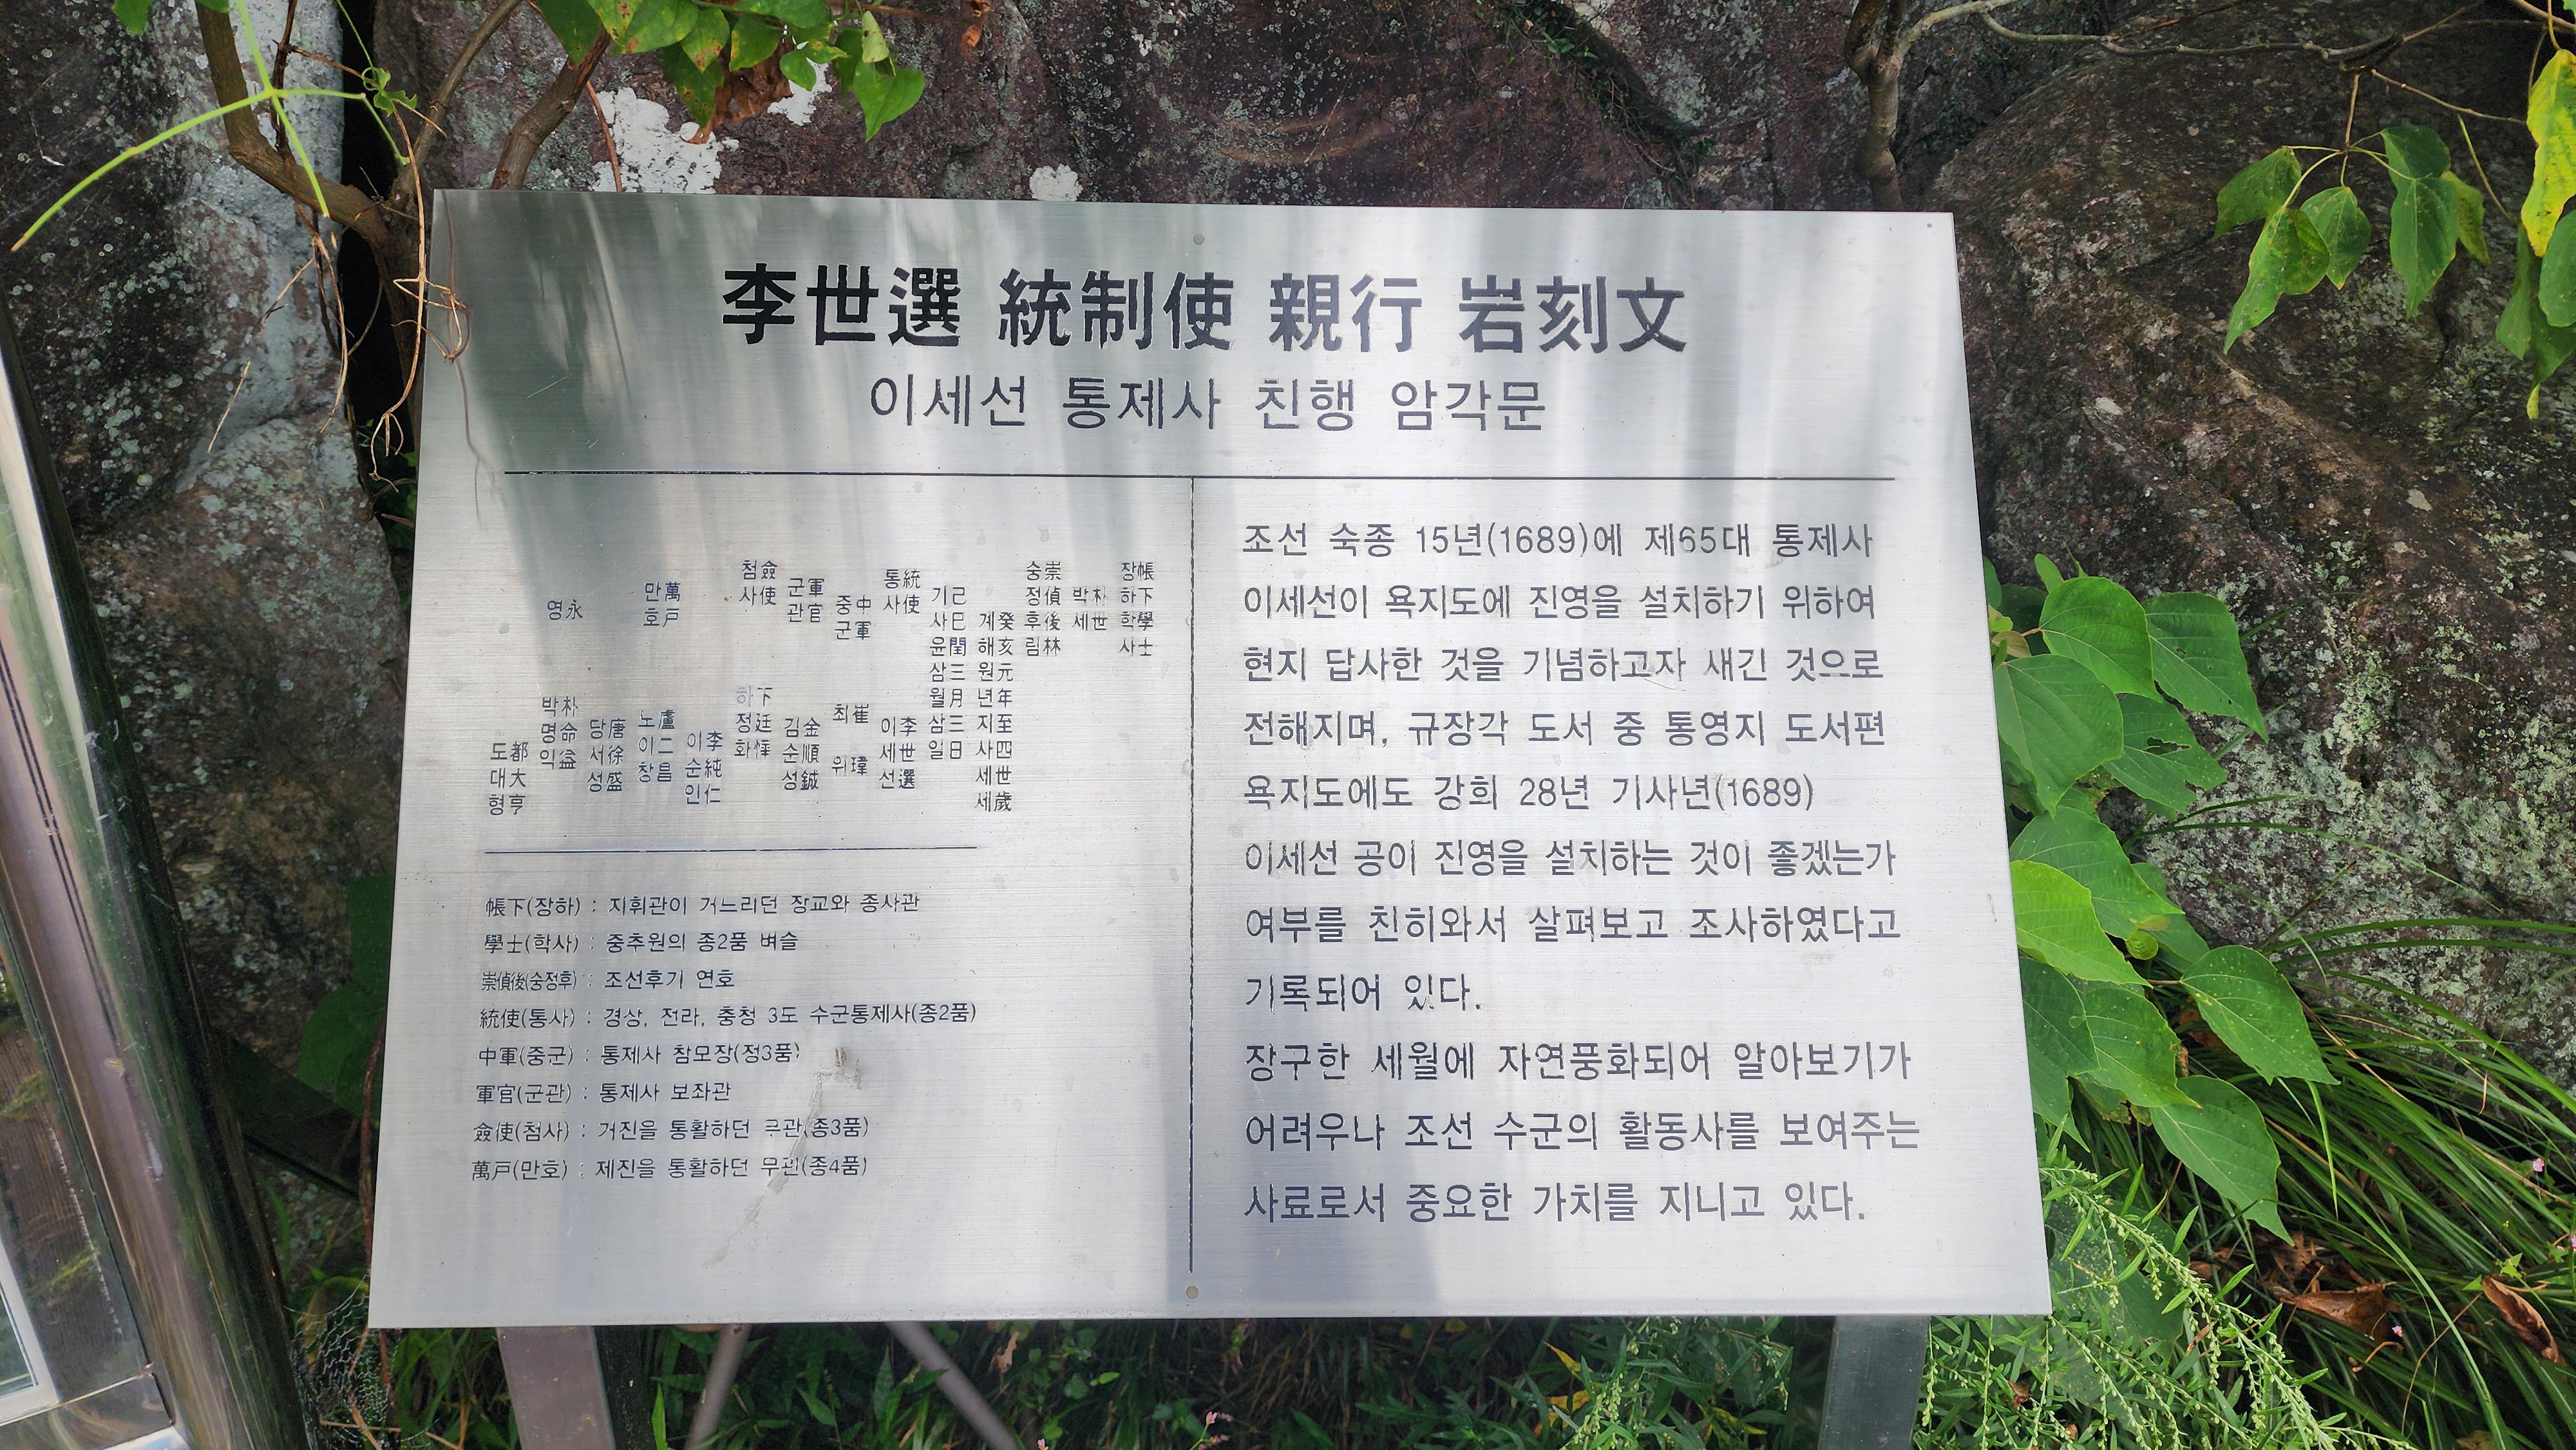 李世選 統制使 親行 岩刻文
이세선 통제사 친행 암각문
帳下學士 장하학사
朴世 박세
崇偵後林 숭정후림
癸亥元年至四世歲 계해원년지사세세
己巳閏三月三日 기사윤삼월삼일
統使 李世選 통사 이세선
中軍 崔瑋 중군 최위
軍官 金順鋮 군관 김순성
僉使 下廷 첨사 하정화
李純仁 이순인
萬戶 盧二昌 만호 노이창
唐徐盛 당서성
永 朴命益 영 박명익
都大亨 도대형
帳下(장하) : 지휘관이 거느리던 장교와 종사관
學士(학사) : 중추원의 종2품 벼슬
崇偵後(숭정후) : 조선후기 연호
統使(통사) : 경상, 전라, 충청 3도 수군통제사(종2품)
中軍(중군) : 통제사 참모장(정3품)
軍官(군관) : 통제사 보좌관
僉使(첨사) : 거진을 통활하던 무관(종3품)
萬戶(만호) : 제진을 통활하던 무관(종4품)
조선 숙종 15년(1689)에 제65대 통제사
이세선이 욕지도에 진영을 설치하기 위하여
현지 답사한 것을 기념하고자 새긴 것으로
전해지며, 규장각 도서 중 통영지 도서편
욕지도에도 강희 28년 기사년(1689)
이세선 공이 진영을 설치하는 것이 좋겠는가
여부를 친히와서 살펴보고 조사하였다고
기록되어 있다.
장구한 세월에 자연풍화되어 알아보기가
어려우나 조선 수군의 활동사를 보여주는
사료로서 중요한 가치를 지니고 있다.